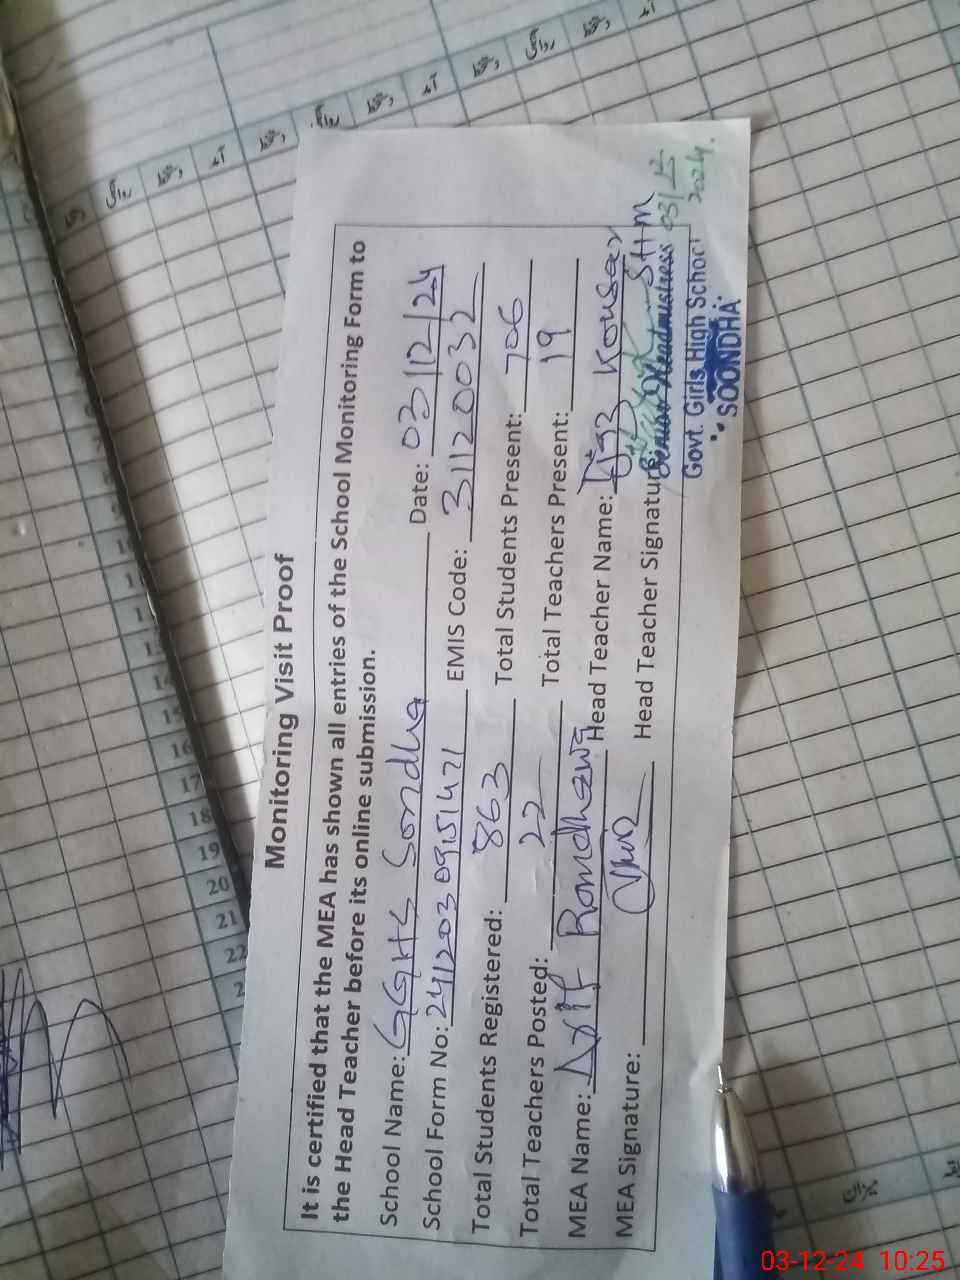 Monitoring Visit Proof
It is certified that the MEA has shown all entries of the School Monitoring Form to
the Head Teacher before its online submission.
School Name: GGHS Sondha Date: 03/12/24
School Form No: 241120309151471 EMIS Code: 31120032
Total Students Registered: 863 Total Students Present: 706
Total Teachers Posted: 22 Total Teachers Present: 19
MEA Name: Randhawa Head Teacher Name: Kousar
MEA Signature: Head Teacher Signature:
SHM 03/12
2024.
Senior Headmistress
Govt. Girls High School
SOONDHA
16
17
18
19
20
21
22
میزان
03-12-24 10:25